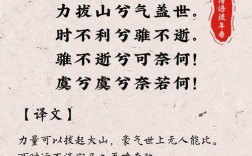 力拔山兮气盖世。
时不利兮骓不逝。
骓不逝兮可奈何!
虞兮虞兮奈若何!
【译文】
力量可以拔起大山，豪气世上无人能比。